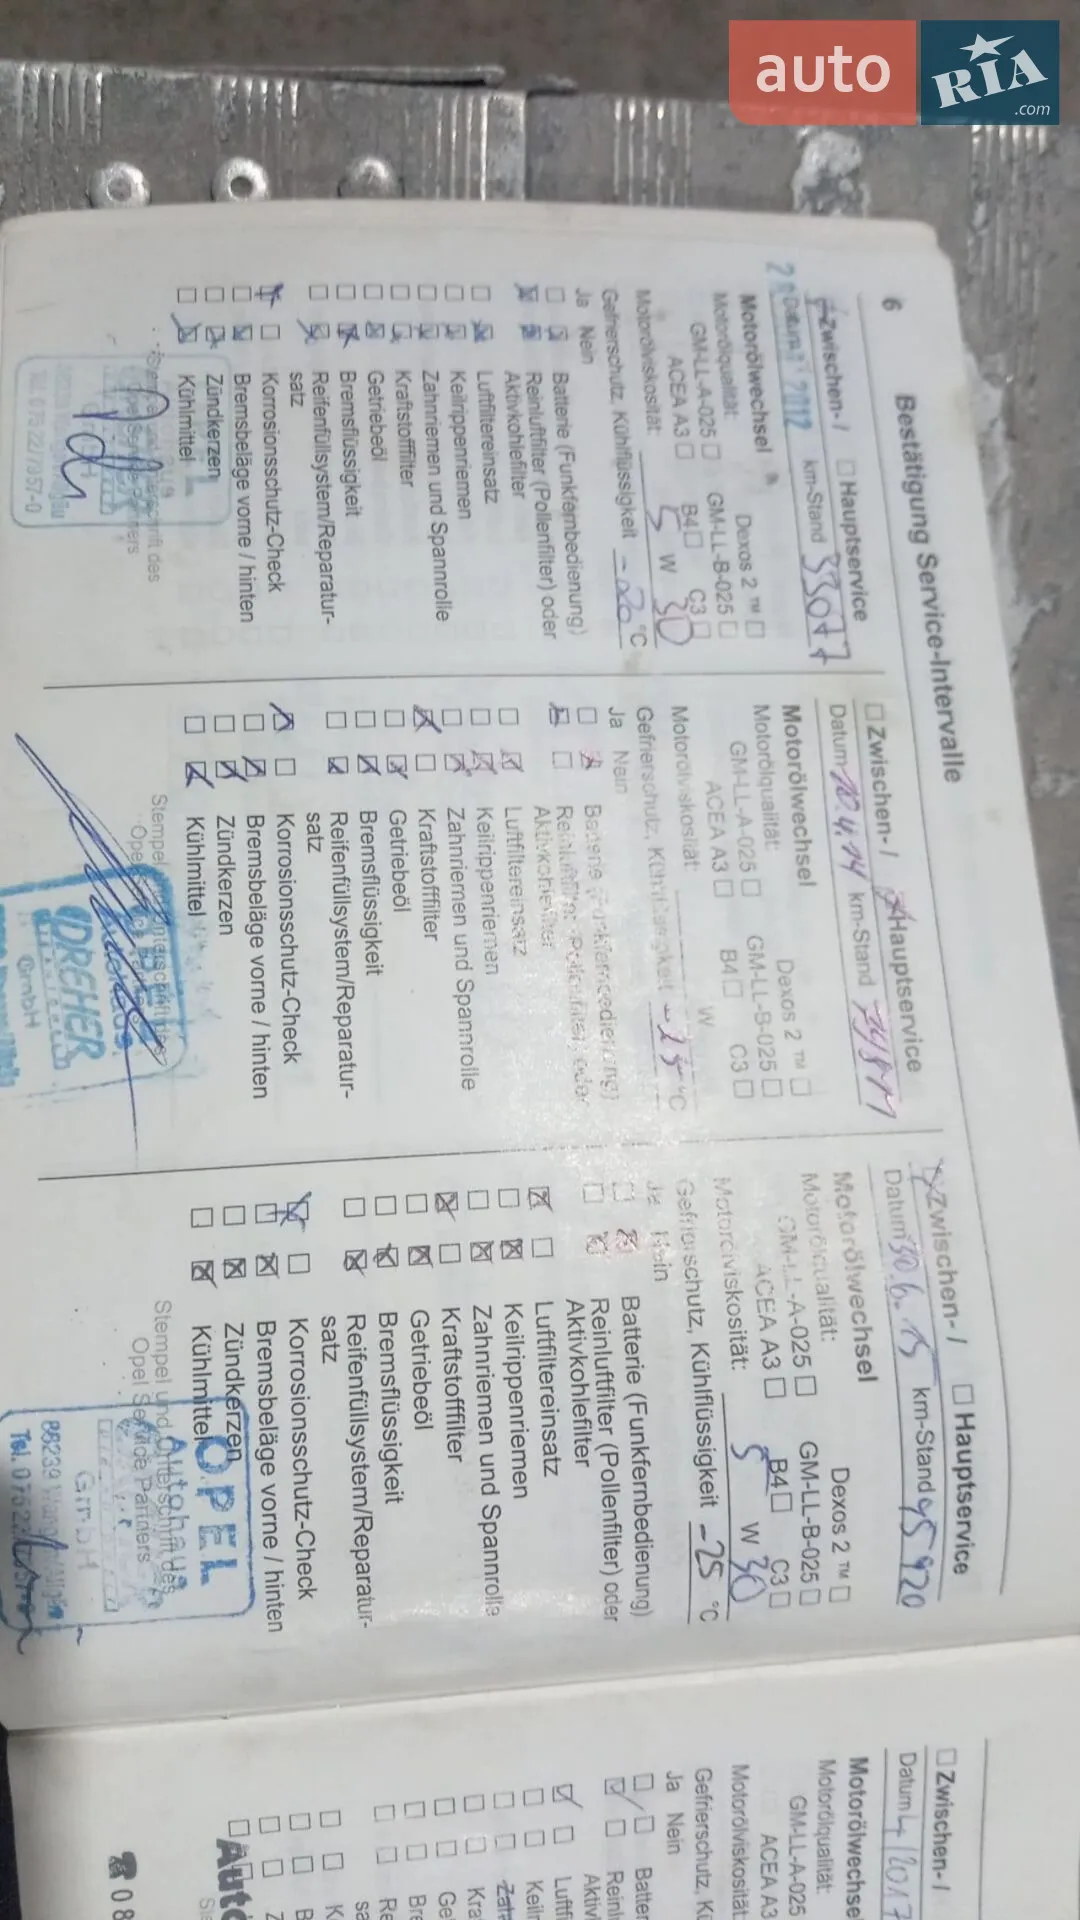 auto
RIA
.com
6
Bestätigung Service-Intervalle
Zwischen- / Hauptservice
Datum 2012 km-Stand 33077
Motorölwechsel Dexos 2 ™
Motorölqualität:
GM-LL-A-025 GM-LL-B-025
ACEA A3 B4 C3
Motorölviskosität: 5 W 30
Gefrierschutz, Kühlflüssigkeit -20 °C
Ja Nein
Batterie (Funkfernbedienung)
Reinluftfilter (Pollenfilter) oder
Aktivkohlefilter
Luftfiltereinsatz
Keilrippenriemen
Zahnriemen und Spannrolle
Kraftstofffilter
Getriebeöl
Bremsflüssigkeit
Reifenfüllsystem/Reparatur-
satz
Korrosionsschutz-Check
Bremsbeläge vorne / hinten
Zündkerzen
Kühlmittel
Zwischen- / Hauptservice
Datum 10.4.14 km-Stand
Motorölwechsel Dexos 2 ™
Motorölqualität:
GM-LL-A-025 GM-LL-B-025
ACEA A3 B4 C3
Motorölviskosität: W
Gefrierschutz, Kühlflüssigkeit °C
Ja Nein
Batterie (Funkfernbedienung)
Reinluftfilter (Pollenfilter) oder
Aktivkohlefilter
Luftfiltereinsatz
Keilrippenriemen
Zahnriemen und Spannrolle
Kraftstofffilter
Getriebeöl
Bremsflüssigkeit
Reifenfüllsystem/Reparatur-
satz
Korrosionsschutz-Check
Bremsbeläge vorne / hinten
Zündkerzen
Kühlmittel
Stempel
DREHER
GmbH
Zwischen- / Hauptservice
Datum 30.6.15 km-Stand 95920
Motorölwechsel Dexos 2 ™
Motorölqualität:
GM-LL-A-025 GM-LL-B-025
ACEA A3 B4 C3
Motorölviskosität: 5 W 30
Gefrierschutz, Kühlflüssigkeit -25 °C
Ja Nein
Batterie (Funkfernbedienung)
Reinluftfilter (Pollenfilter) oder
Aktivkohlefilter
Luftfiltereinsatz
Keilrippenriemen
Zahnriemen und Spannrolle
Kraftstofffilter
Getriebeöl
Bremsflüssigkeit
Reifenfüllsystem/Reparatur-
satz
Korrosionsschutz-Check
Bremsbeläge vorne / hinten
Zündkerzen
Kühlmittel
Stempel und Unterschrift des
Opel Service Partners
OPEL
Autohaus
GmbH
Zwischen- /
Datum 4/2017
Motorölwechsel
Motorölqualität:
GM-LL-A-025
ACEA A3
Motorölviskosität:
Gefrierschutz, Kü
Ja Nein
Batter
Reinl
Aktiv
Luftf
Keil
Zah
Kra
Ge
Br
Re
sa
K
B
Z
Auto
08